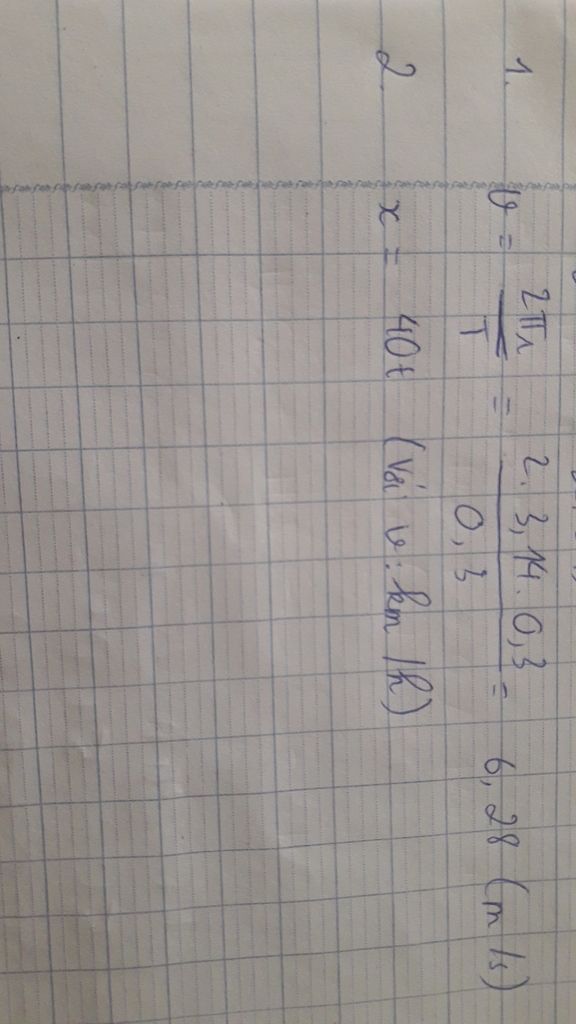 1. v = 2πr / T = 2. 3,14. 0,3 / 0,3 = 6,28 (m/s)
2. x = 40t (với v: km/h)